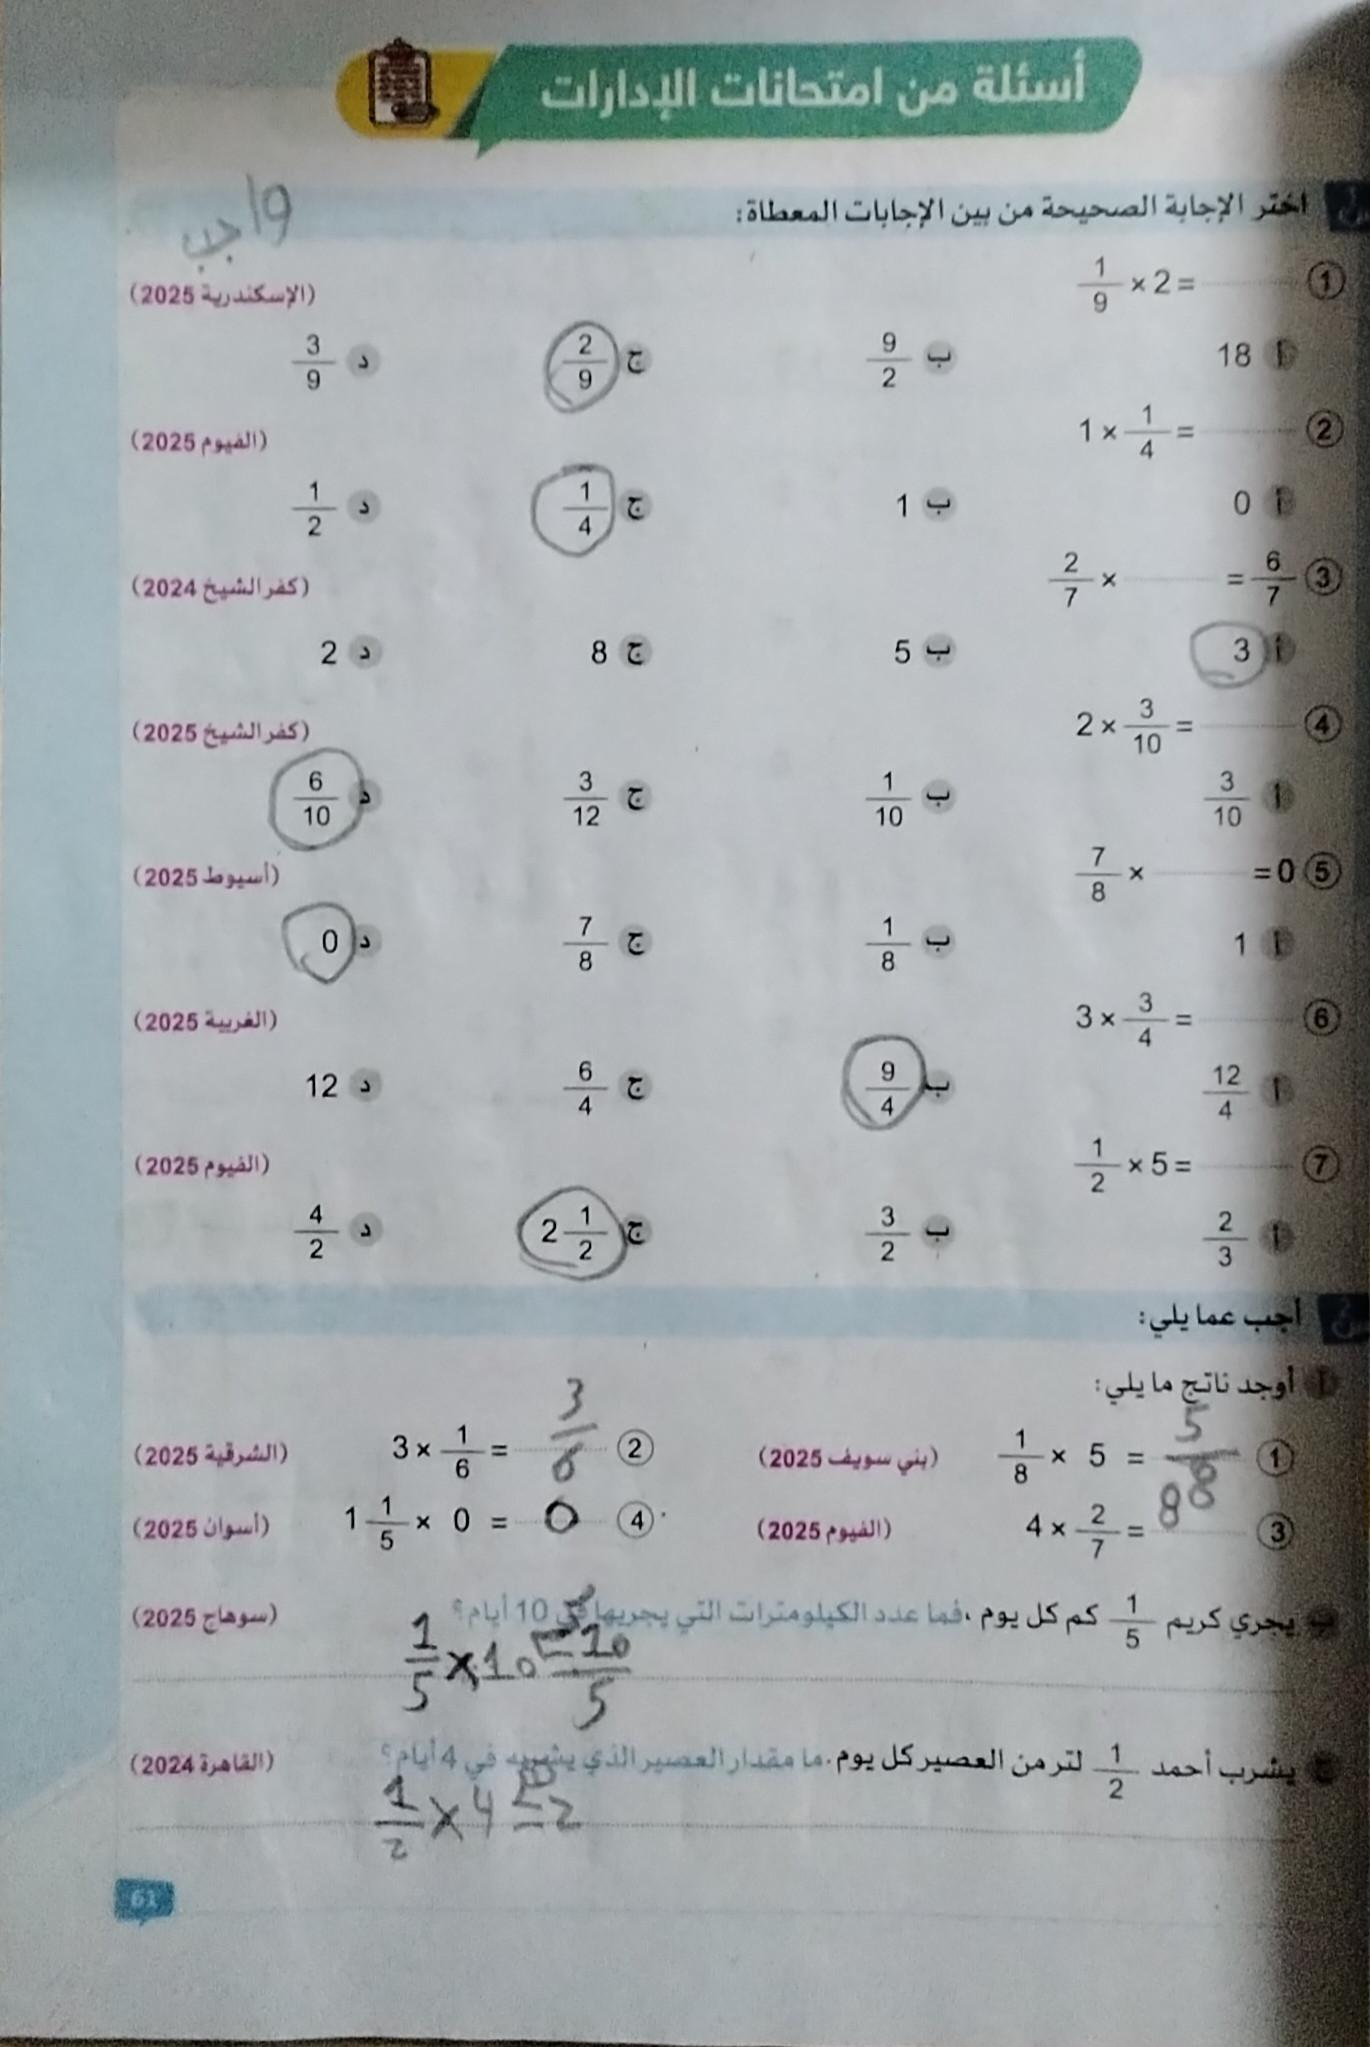 أسئلة من امتحانات الإدارات
واجب
اختر الإجابة الصحيحة من بين الإجابات المعطاة:
① 1/9 × 2 = (الإسكندرية 2025)
أ 18 ب 9/2 ج 2/9 د 3/9
② 1 × 1/4 = (الفيوم 2025)
أ 0 ب 1 ج 1/4 د 1/2
③ 2/7 × = 6/7 (كفر الشيخ 2024)
أ 3 ب 5 ج 8 د 2
④ 2 × 3/10 = (كفر الشيخ 2025)
أ 3/10 ب 1/10 ج 3/12 د 6/10
⑤ 7/8 × = 0 (أسيوط 2025)
أ 1 ب 1/8 ج 7/8 د 0
⑥ 3 × 3/4 = (الغربية 2025)
أ 12/4 ب 9/4 ج 6/4 د 12
⑦ 1/2 × 5 = (الفيوم 2025)
أ 2/3 ب 3/2 ج 2 1/2 د 4/2
أجب عما يلي:
أ أوجد ناتج ما يلي:
① 1/8 × 5 = 5/8 (بني سويف 2025) ② 3 × 1/6 = 3/6 (الشرقية 2025)
③ 4 × 2/7 = 8 (الفيوم 2025) ④ 1 1/5 × 0 = 0 (أسوان 2025)
ب يجري كريم 1/5 كم كل يوم، فما عدد الكيلومترات التي يجريها في 10 أيام؟ (سوهاج 2025)
1/5 × 10 = 10/5
ج يشرب أحمد 1/2 لتر من العصير كل يوم. ما مقدار العصير الذي يشربه في 4 أيام؟ (القاهرة 2024)
1/2 × 4 = 2
61